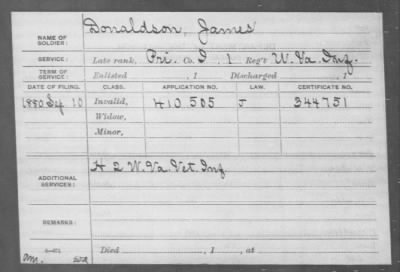 NAME OF SOLDIER: Donaldson, James
SERVICE: Late rank, Pri. Co. I, 1 Reg't W. Va. Inf.
TERM OF SERVICE: Enlisted , 1 Discharged , 1
DATE OF FILING. CLASS. APPLICATION NO. LAW. CERTIFICATE NO.
1880 Sep 10 Invalid, 410 505 J 344751
Widow,
Minor,
ADDITIONAL SERVICES: H 2 W. Va. Vet. Inf
REMARKS:
Died , 1 , at